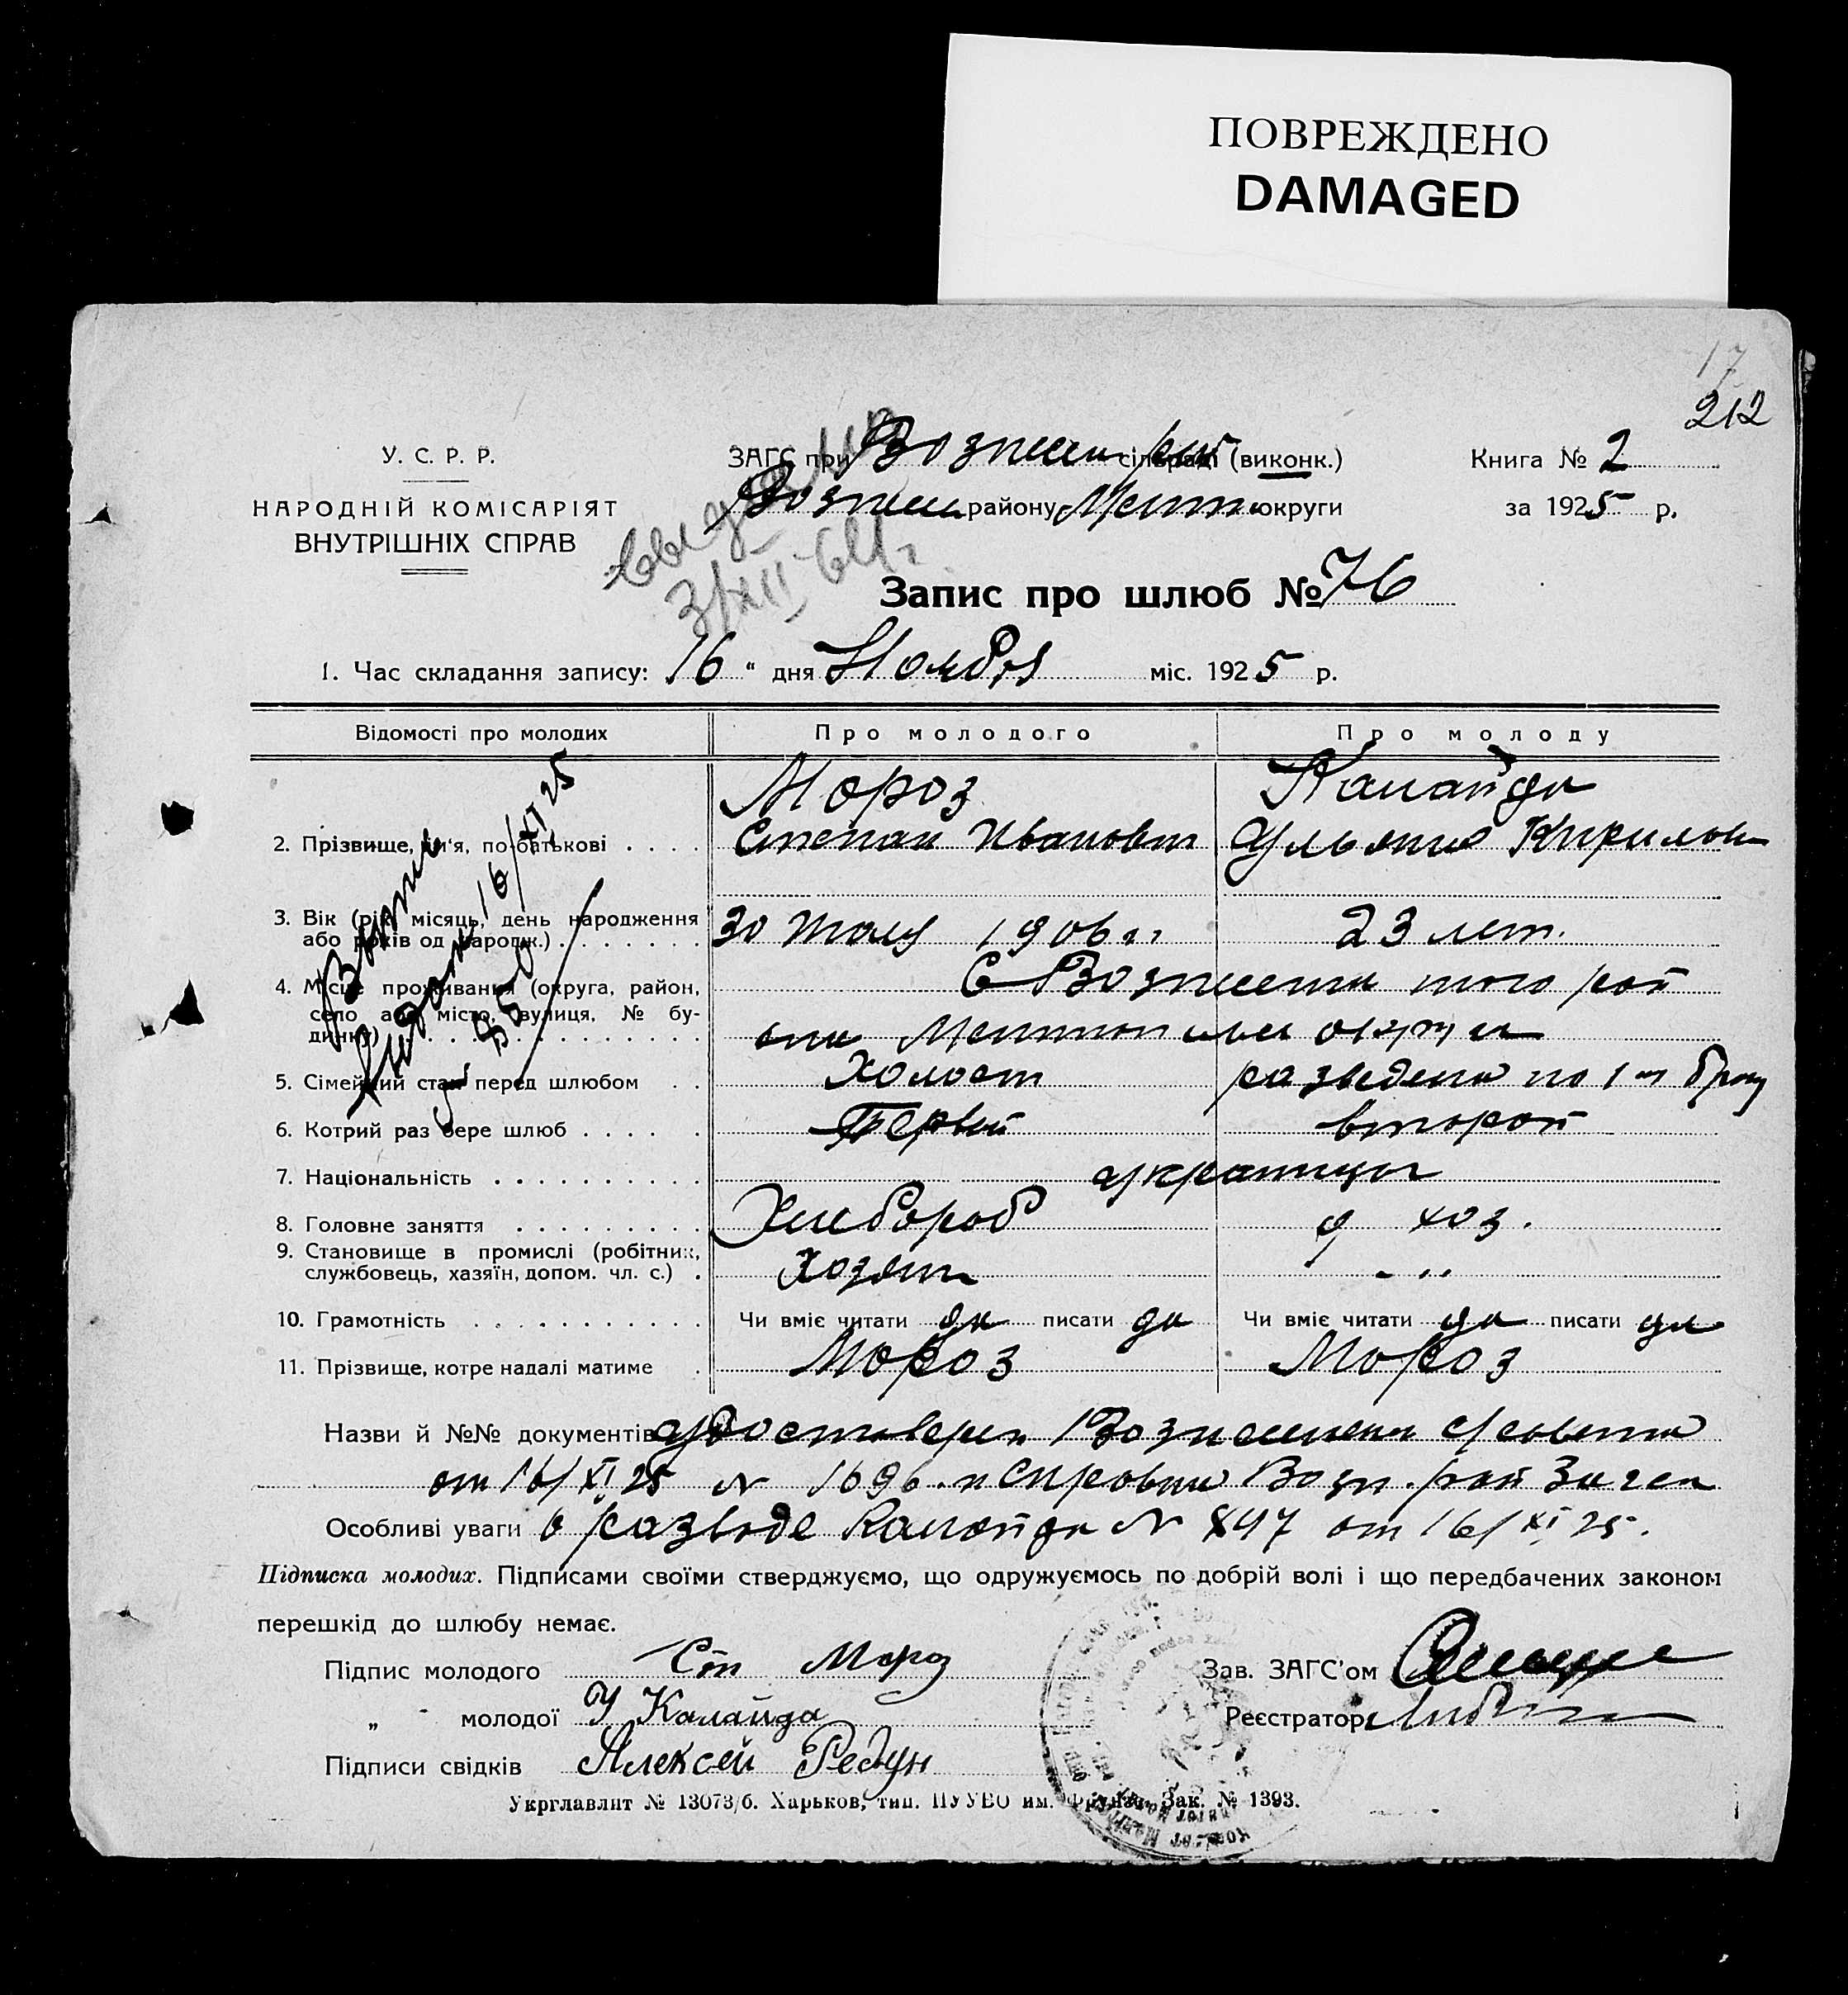 ПОВРЕЖДЕНО
DAMAGED
17
212
У. С. Р. Р.
НАРОДНІЙ КОМІСАРІЯТ
ВНУТРІШНІХ СПРАВ
ЗАГС при Вознесен рай сільраді (виконк.)
Вознесен району Мелит округи
Книга № 2
за 1925 р.
3/XII-61 г.
Запис про шлюб № 76
1. Час складання запису: 16 " дня Ноября міс. 1925 р.
Відомості про молодих Про молодого Про молоду
Мороз Калайда
2. Прізвище, ім'я, по-батькові . . . . Степан Иванович Ульяна Кирилов
3. Вік (рік, місяць, день народження
або років од народж.) . . . . . . . 30 1906 г. 23 лет.
4. Місце проживання (округа, район, С Вознесенка того рай
село або місто, вулиця, № бу-
динку) . . . . . . . . . . . . . . .
5. Сімейний стан перед шлюбом . . Холост разведена по 1 м браку
6. Котрий раз бере шлюб . . . . . Первый второй
7. Національність . . . . . . . . . . украинцы
8. Головне заняття . . . . . . . . . Хлебороб д хоз.
9. Становище в промислі (робітник,
службовець, хазяїн, допом. чл. с.) . Хозяин - " -
10. Грамотність . . . . . . . . . . . Чи вміє читати да писати да Чи вміє читати да писати да
11. Прізвище, котре надалі матиме . Мороз Мороз
16/XI 25
Назви й №№ документів удостоверен Вознесенск с/совета
от 16/XI 25 N 1696 и справка Возн. рай Загса
Особливі уваги о разводе Калайда N 847 от 16/XI 25.
Підписка молодих. Підписами своїми стверджуємо, що одружуємось по добрій волі і що передбачених законом
перешкід до шлюбу немає.
Підпис молодого Ст Мороз Зав. ЗАГС'ом
„ - молодої У Калайда Реєстратор
Підписи свідків Алексей Редун
Укрглавліт № 13073/б. Харьков, тип. ПУУВО им. Фрунзе. Зак. № 1393.